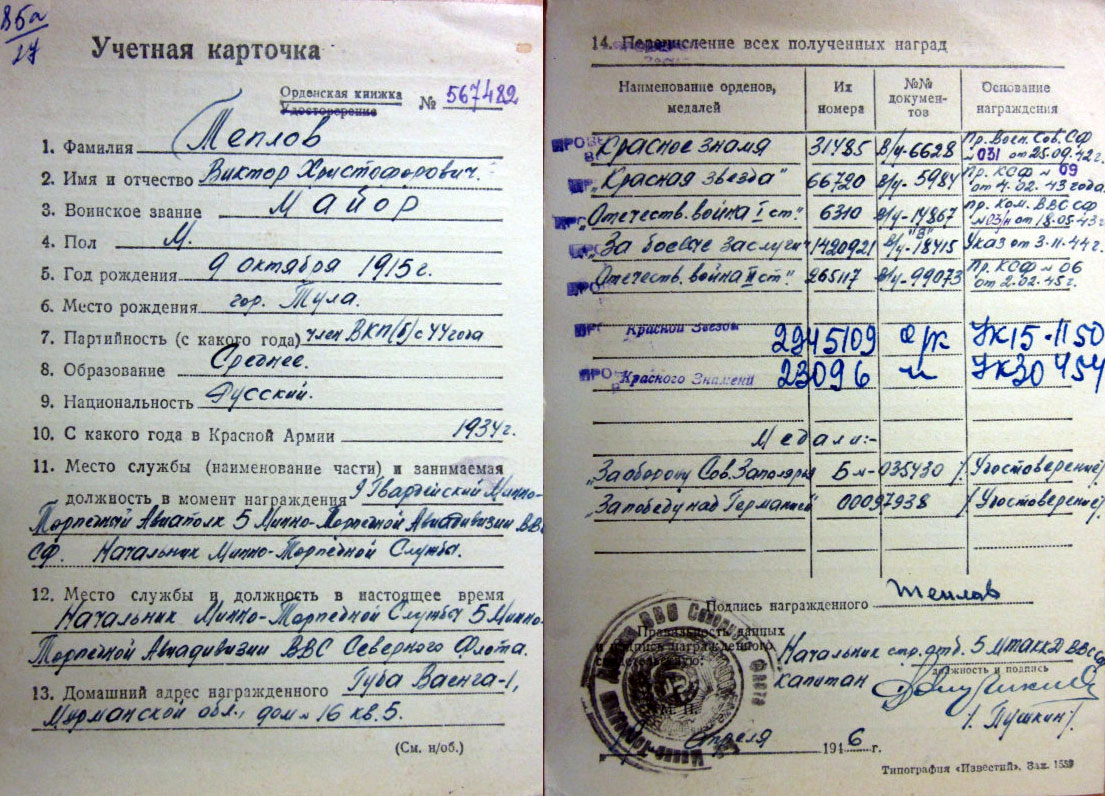 85а
27
Учетная карточка
Орденская книжка
Удостоверение
№ 567482
1. Фамилия Теплов
2. Имя и отчество Виктор Христофорович.
3. Воинское звание Майор
4. Пол М.
5. Год рождения 9 октября 1915 г.
6. Место рождения гор. Тула.
7. Партийность (с какого года) член ВКП(б) с 44 года
8. Образование Среднее.
9. Национальность Русский.
10. С какого года в Красной Армии 1934 г.
11. Место службы (наименование части) и занимаемая
должность в момент награждения 9 Гвардейский Минно-
Торпедный Авиаполк 5 Минно-Торпедной Авиадивизии ВВС
СФ. Начальник Минно-Торпедной Службы.
12. Место службы и должность в настоящее время
Начальник Минно-Торпедной Службы 5 Минно-
Торпедной Авиадивизии ВВС Северного Флота.
13. Домашний адрес награжденного Губа Ваенга-1,
Мурманской обл., дом № 16 кв. 5.
(См. н/об.)
14. Перечисление всех полученных наград
Наименование орденов, медалей Их номера №№ докумен-тов Основание награждения
Красное знамя 31485 В/у-6628 Пр. Воен. Сов. СФ № 031 от 25.09.42 г.
„Красная звезда" 66720 В/у-5984 Пр. КСФ № 09 от 4.02.43 года
„Отечеств. война I ст." 6310 В/у-14867 Пр. Ком. ВВС СФ № 03/н от 18.05.43 г
„За боевые заслуги" 1420921 В/у-"В" 18415 Указ от 3.11.44 г.
„Отечеств. война II ст." 265117 В/у-99073 Пр. КСФ № 06 от 2.02.45 г.
Красной Звезды 2945109 о/к УК 15-1150
Красного Знамени 23096 УК 30 454
Медали:-
„За оборону Сов. Заполярья Бм-035430 (Удостоверение)
„За победу над Германией" 00097938 (Удостоверение)
Подпись награжденного Теплов
Правильность данных
и подписи награжденного
Начальник стр. отд. 5 МТАККД ВВС СФ
должность и подпись
капитан
/Пушкин/.
М. П.
Апреля 1946 г.
Типография «Известий». Зак. 1559